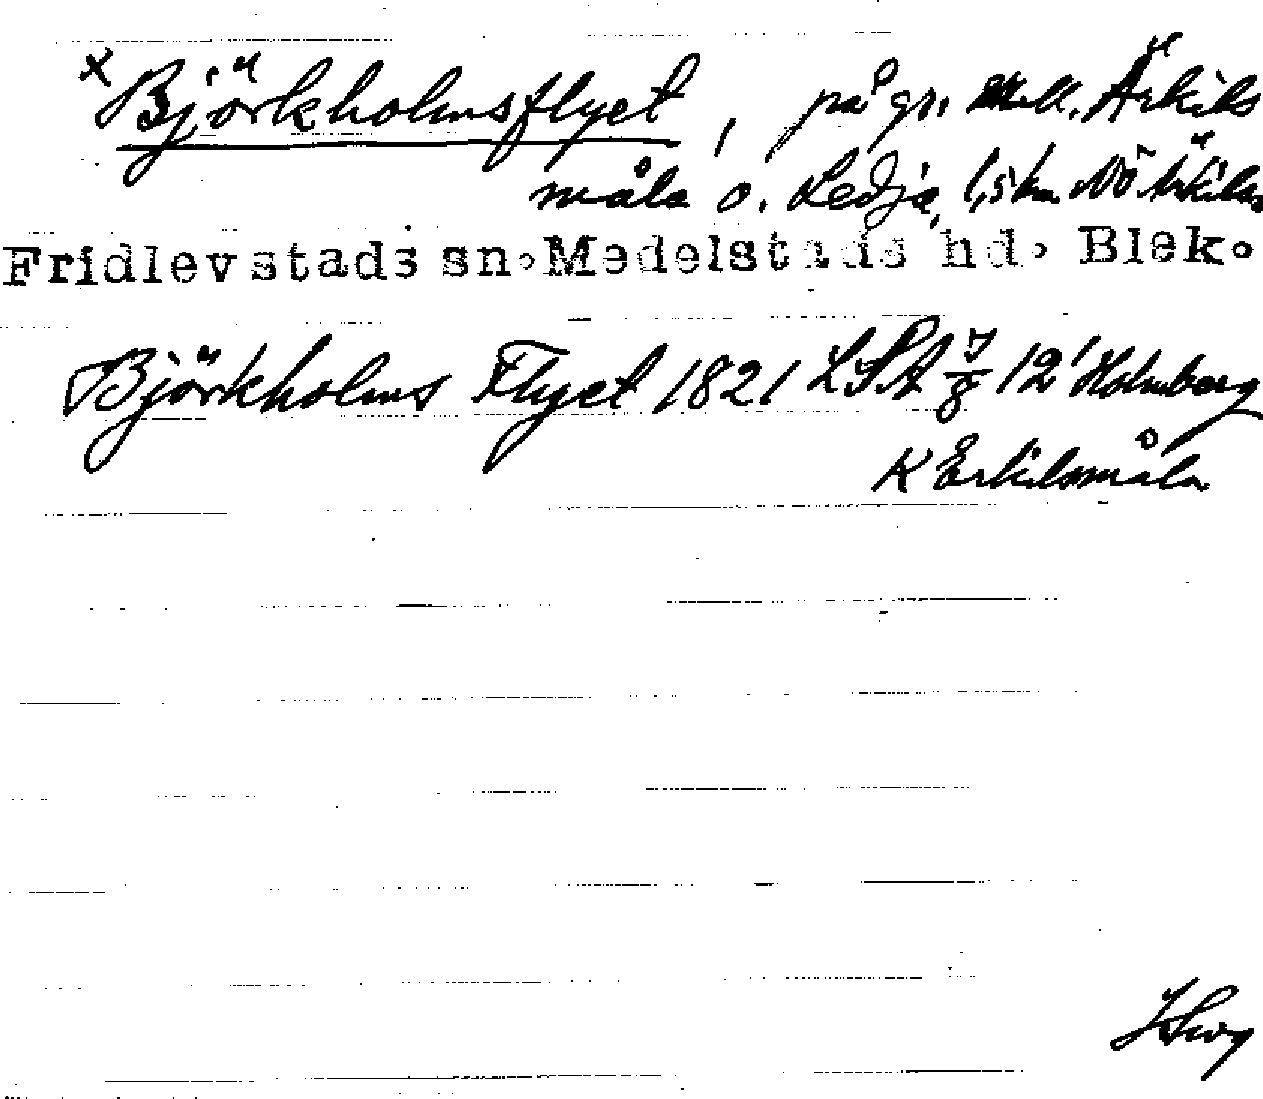 x Björkholmsflyet, på gr. mell. Ärkils
måla o. Ledja, 1,5 km NÖ Ärkilsm
Fridlevstads sn. Medelstads hd. Blek.
Björkholms Flyet 1821 LSA 12 Holmberg
K Erkilsmåla